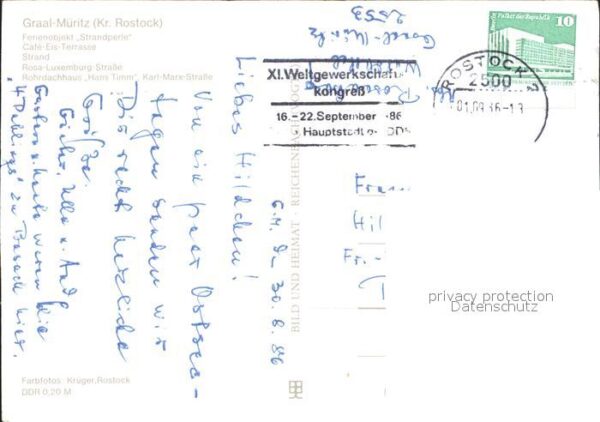 Graal-Müritz (Kr. Rostock)
Ferienobjekt „Strandperle"
Café-Eis-Terrasse
Strand
Rosa-Luxemburg-Straße
Rohrdachhaus „Hans Timm", Karl-Marx-Straße
2553
Graal-Müritz
XI.Weltgewerkschafts
kongreß
16.–22.September 86
Hauptstadt DDR
Palast der Republik
10
ROSTOCK 2
2500
G.M. d. 30.8.86
Liebes Hildchen!
Von ein paar Ostsee-
tagen senden wir
Dir recht herzliche
Grüße.
Gestern u. heute waren die
zu Besuch hier.
BILD UND HEIMAT · REICHENBACH
Frau
Hil
Fr.-
privacy protection
Datenschutz
Farbfotos: Krüger, Rostock
DDR 0,20 M